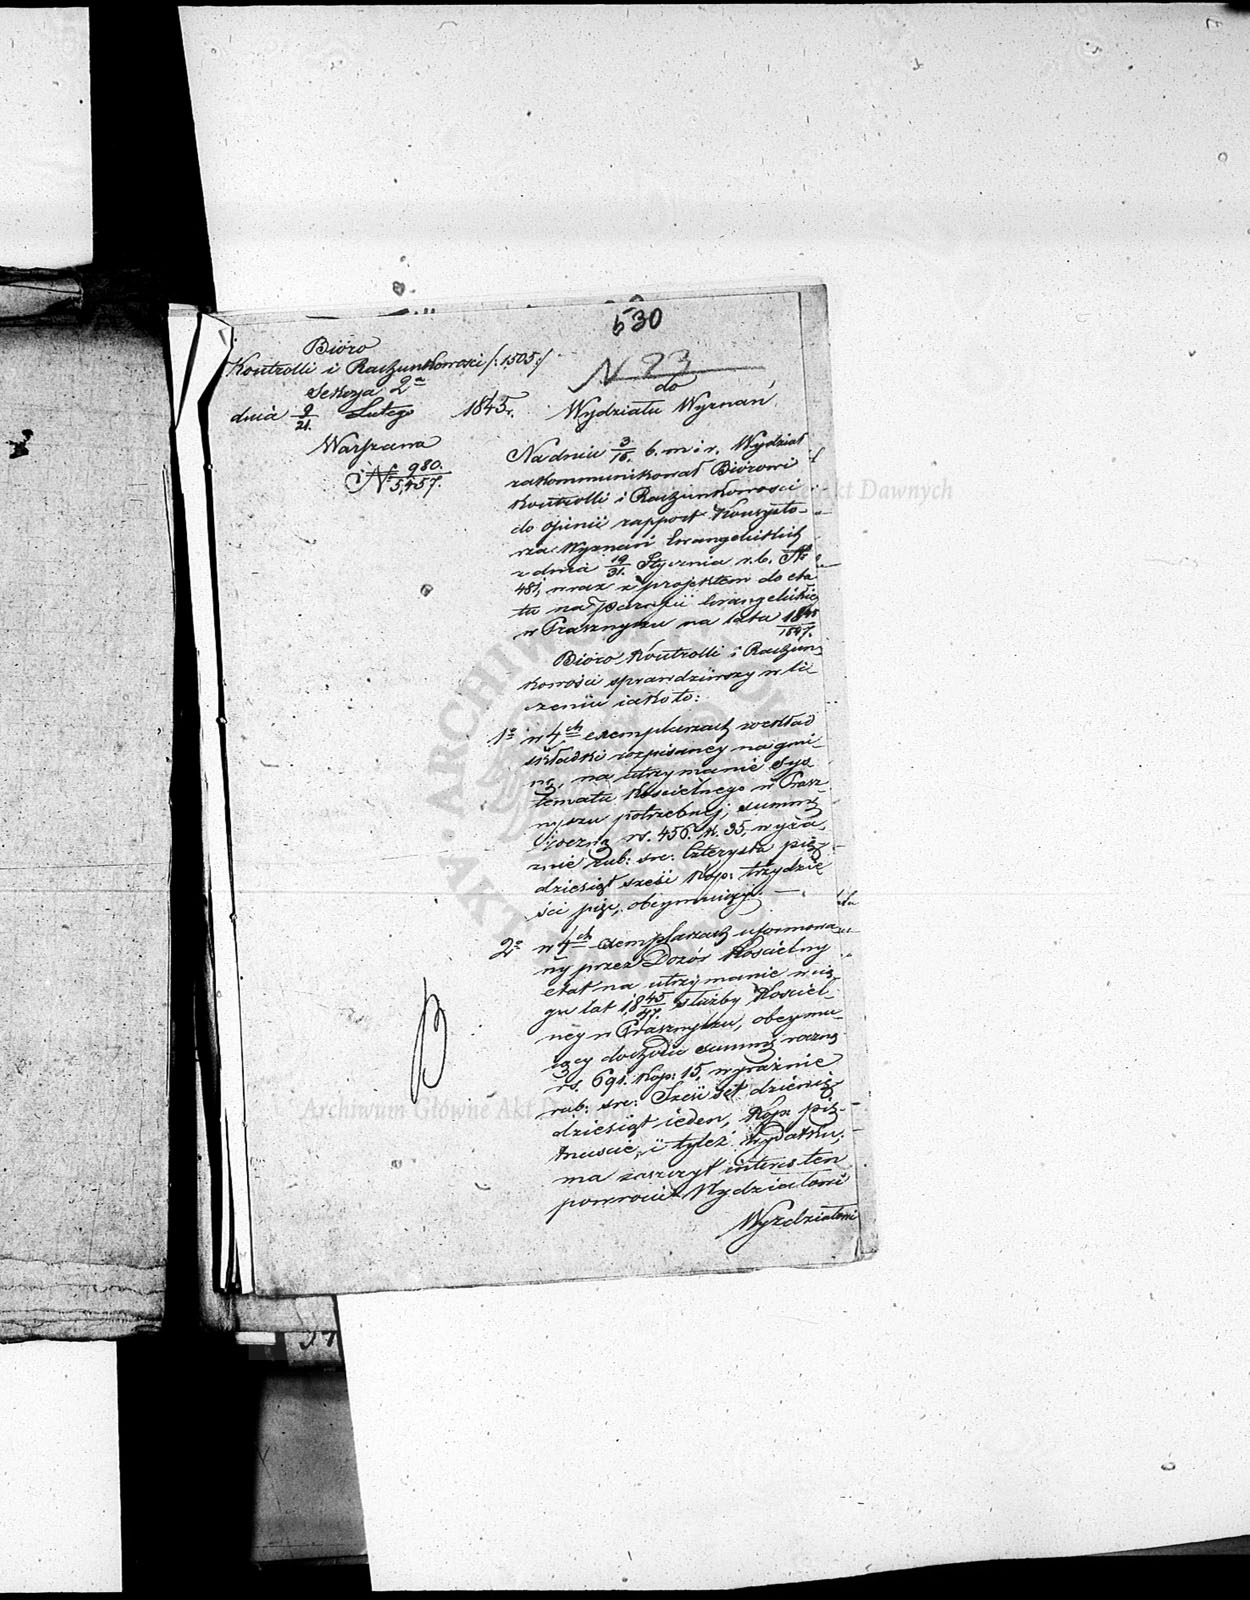 530
Bióro
Kontrolli i Rachunkowości /:1505:/
Sekcya 2ª
dnia 9/21. Lutego 1845 r.
Warszawa
№ 980./5,457.
N 23
do
Wydziału Wyznań
Na dniu 3/15. b. m. i r. Wydział
zakommunikował Biórowi
Kontrolli i Rachunkowości
do opinii rapport Konsysto-
rza Wyznań Ewangelickich
z dnia 19/31. Stycznia r. b. №
481, wraz z projektem do eta
tu na Parafii Ewangelickiej
w Prasnyszu na lata 1845/1847.
Bióro Kontrolli i Rachun
kowości sprawdziwszy w li
czeniu iako to:
1º w 4ch exemplarzach rozkład
składki rozpisaney na gmi-
nę, na utrzymanie Sys
tematu Kościelnego w Prasz-
nyszu potrzebnej, summę
roczną rs. 456. k. 35, wyra-
źnie rub: sre: Czterysta pięć-
dziesiąt sześć kop: trzydzie
ści pięć, obeymuiący. —
2º w 4ch exemplarzach uformowa
ny przez Dozór Kościelny
etat na utrzymanie w cią
gu lat 1845/47. służby Kościel-
ney w Prasznyszu, obeymu-
iący dochodu summę roczną
rs. 691. kop: 15, wyraźnie
rub: sre: Sześć set dziewięć
dziesiąt ieden, kop: pięt-
naście, i tyleż wydatku,
ma zaszczyt interes ten
powrócić Wydziałowi
Wydziałowi
Archiwum Główne Akt Dawnych